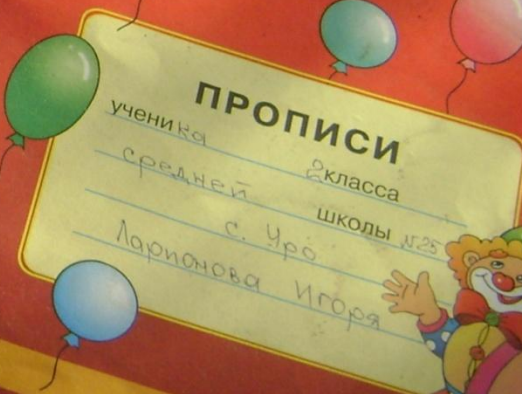 ПРОПИСИ
ученика 2 класса
средней школы №25
с. Уро
Ларионова Игоря